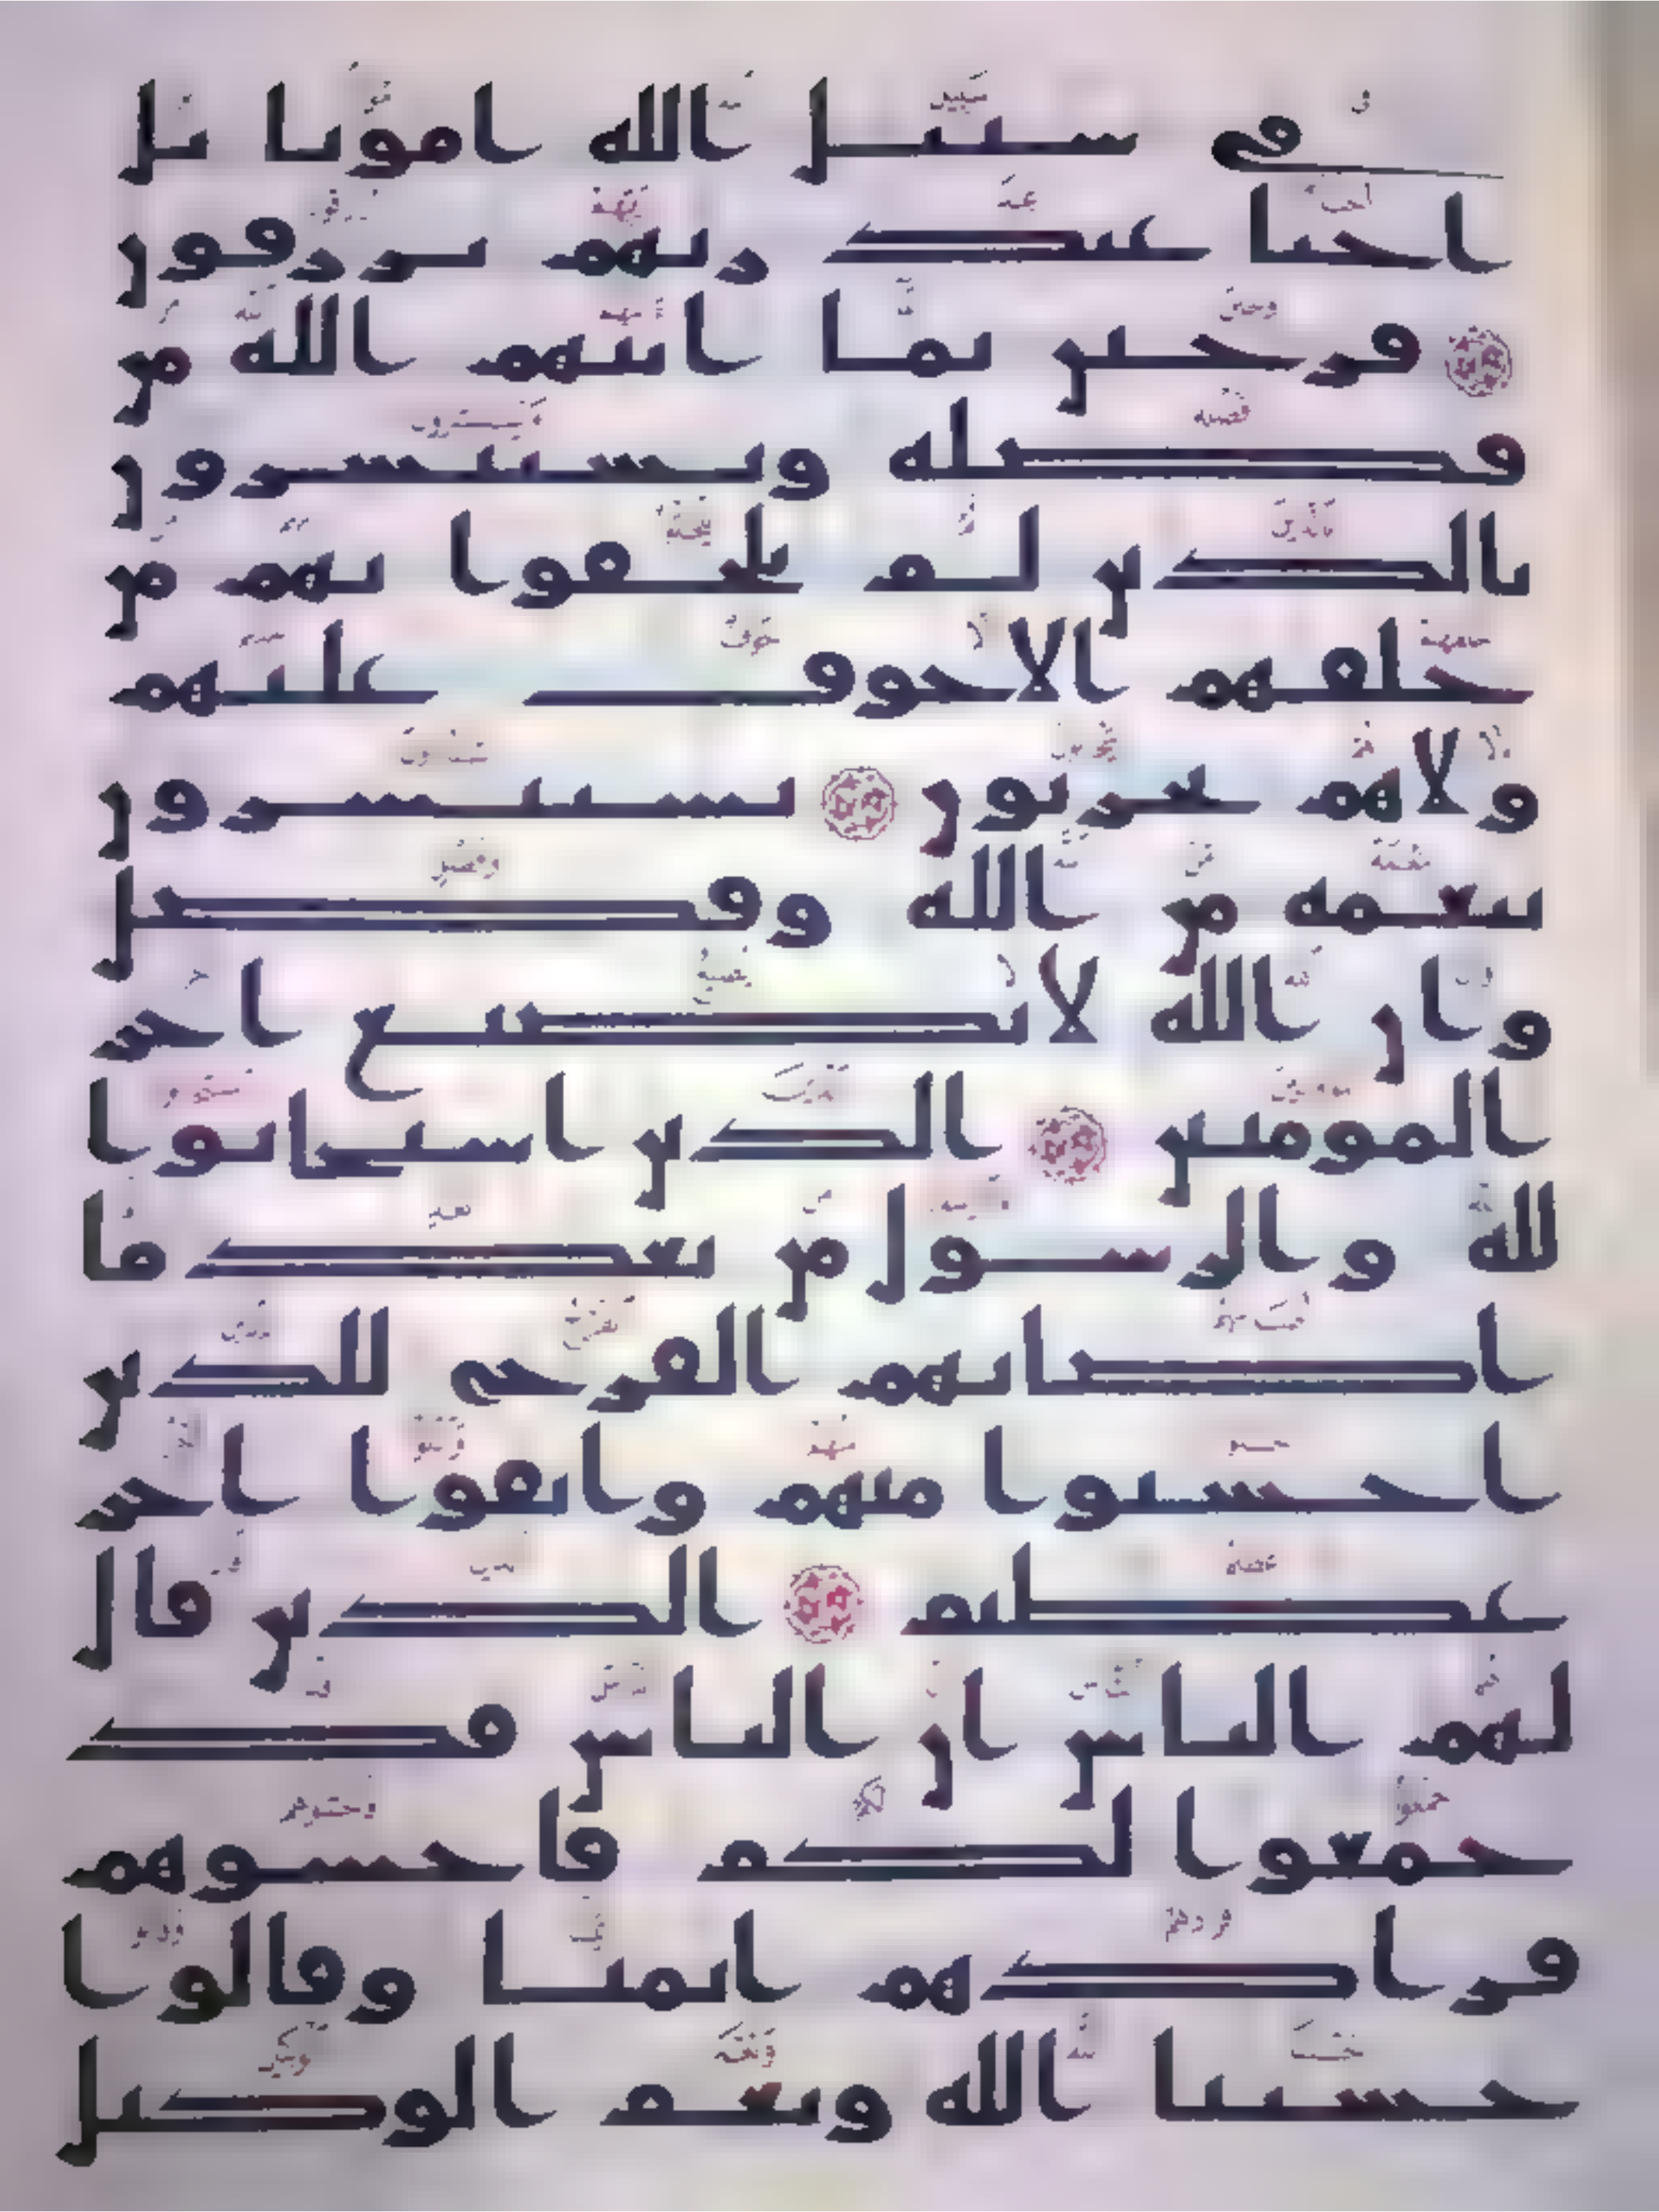 في سبيل الله اموتا بل
احيا عند ربهم يرزقون
فرحين بما اتيهم الله من
فضله ويستبشرون
بالذين لم يلحقوا بهم من
خلفهم الا خوف عليهم
ولا هم يحزنون يستبشرون
بنعمه من الله وفضل
وان الله لا يضيع اجر
المومنين الذين استجابوا
لله والرسول من بعد ما
اصابهم القرح للذين
احسنوا منهم واتقوا اجر
عظيم الذين قال
لهم الناس ان الناس قد
جمعوا لكم فاخشوهم
فزادهم ايمنا وقالوا
حسبنا الله ونعم الوكيل